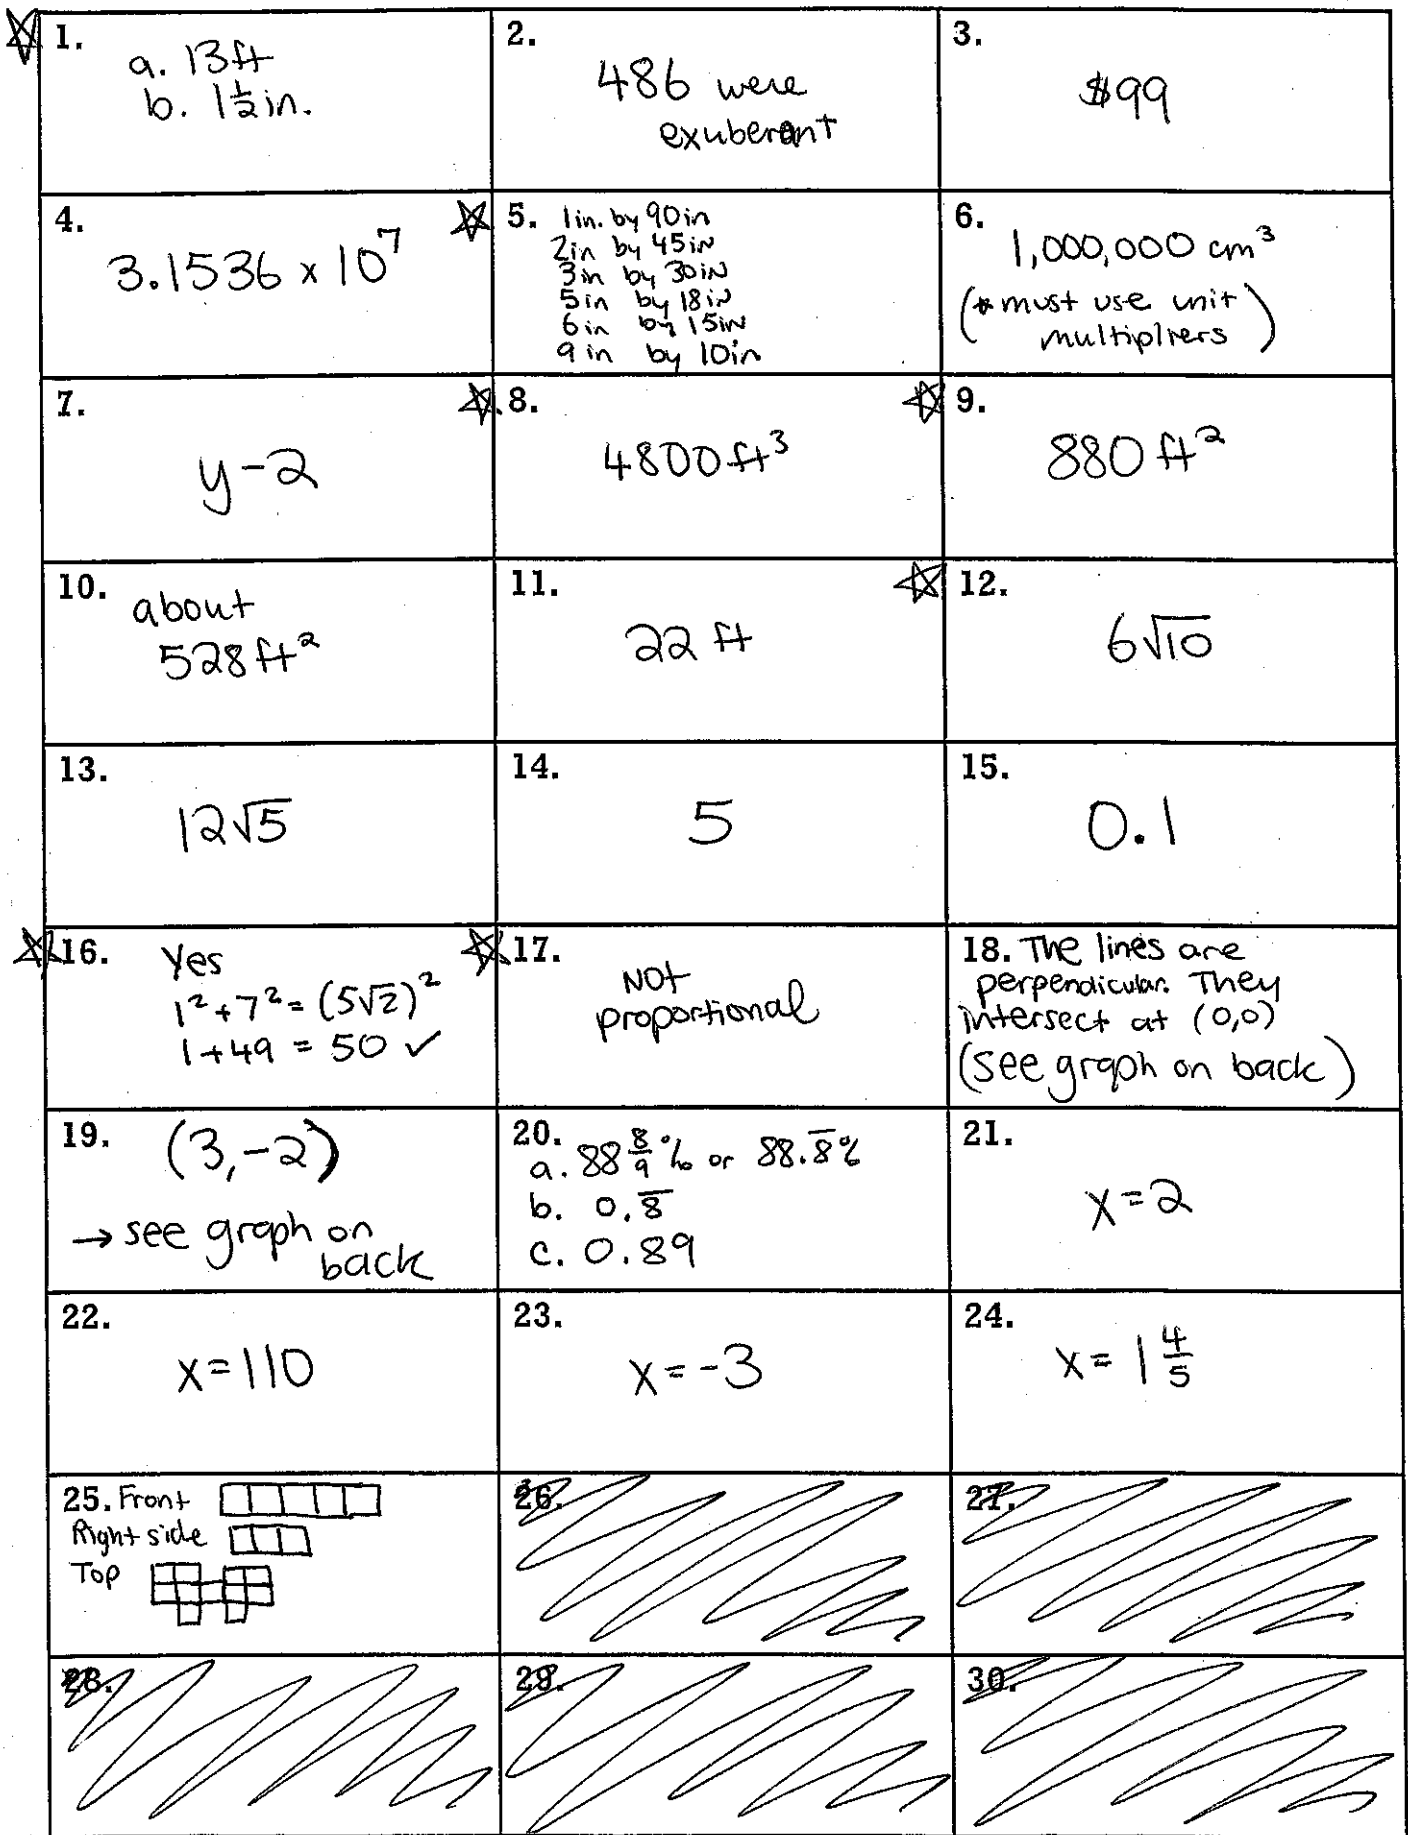 1.
a. 13ft
b. 1 1/2 in.
2.
486 were
exuberant
3.
$99
4.
3.1536 x 10^7
5. 1in. by 90in
2in by 45in
3in by 30in
5in by 18in
6in by 15in
9in by 10in
6.
1,000,000 cm^3
(* must use unit
multipliers)
7.
y-2
8.
4800 ft^3
9.
880 ft^2
10.
about
528 ft^2
11.
22 ft
12.
6√10
13.
12√5
14.
5
15.
0.1
16. Yes
1^2 + 7^2 = (5√2)^2
1 + 49 = 50 ✓
17.
NOT
proportional
18. The lines are
perpendicular. They
intersect at (0,0)
(see graph on back)
19. (3,-2)
→ see graph on
back
20.
a. 88 8/9 % or 88.8̅%
b. 0.8̅
c. 0.89
21.
x=2
22.
x=110
23.
x=-3
24.
x= 1 4/5
25. Front
Right side
Top
26.
27.
28.
29.
30.